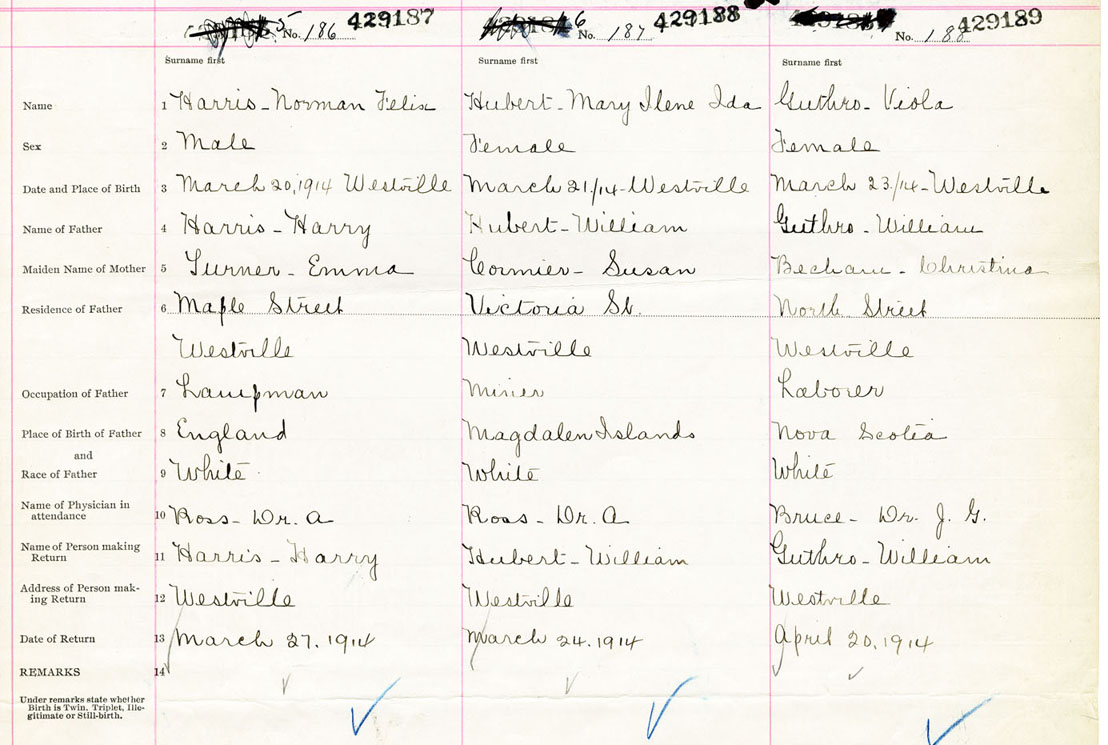 429187 429188 429189
No. 186 No. 187 No. 188
Surname first Surname first Surname first
Name 1 Harris - Norman Felix Hubert - Mary Ilene Ida Guthro - Viola
Sex 2 Male Female Female
Date and Place of Birth 3 March 20, 1914 Westville March 21/14 - Westville March 23/14 - Westville
Name of Father 4 Harris - Harry Hubert - William Guthro - William
Maiden Name of Mother 5 Turner - Emma Cormier - Susan Christina
Residence of Father 6 Maple Street Victoria St. North Street
Westville Westville Westville
Occupation of Father 7 Lampman Miner Laborer
Place of Birth of Father 8 England Magdalen Islands Nova Scotia
and
Race of Father 9 White White White
Name of Physician in
attendance 10 Ross - Dr. A Ross - Dr. A Bruce - Dr. J. G.
Name of Person making
Return 11 Harris - Harry Hubert - William Guthro - William
Address of Person mak-
ing Return 12 Westville Westville Westville
Date of Return 13 March 27. 1914 March 24. 1914 April 20, 1914
REMARKS 14
Under remarks state whether
Birth is Twin, Triplet, Ille-
gitimate or Still-birth.